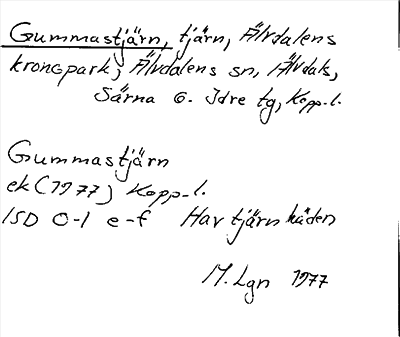 Gummastjärn, tjärn, Älvdalens
kronopark, Älvdalens sn, Älvdals,
Särna o. Idre tg, Kopp.l.
Gummastjärn
ek (1977) Kopp-l.
ISD 0-1 e-f Hartjärnheden
M. Lgn 1977